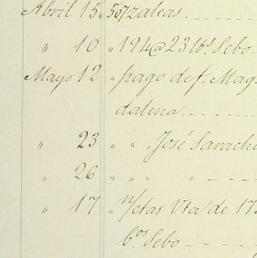 Abril 15 " 567 zaleas.
" 10 " 194@23 lbs. Sebo
Mayo 12 " pago de f. Mag
dalena.
" 23 " " " José Sarach
" 26 " " " "
" 17 " n/ctas Vta/de 17
b.os Sebo